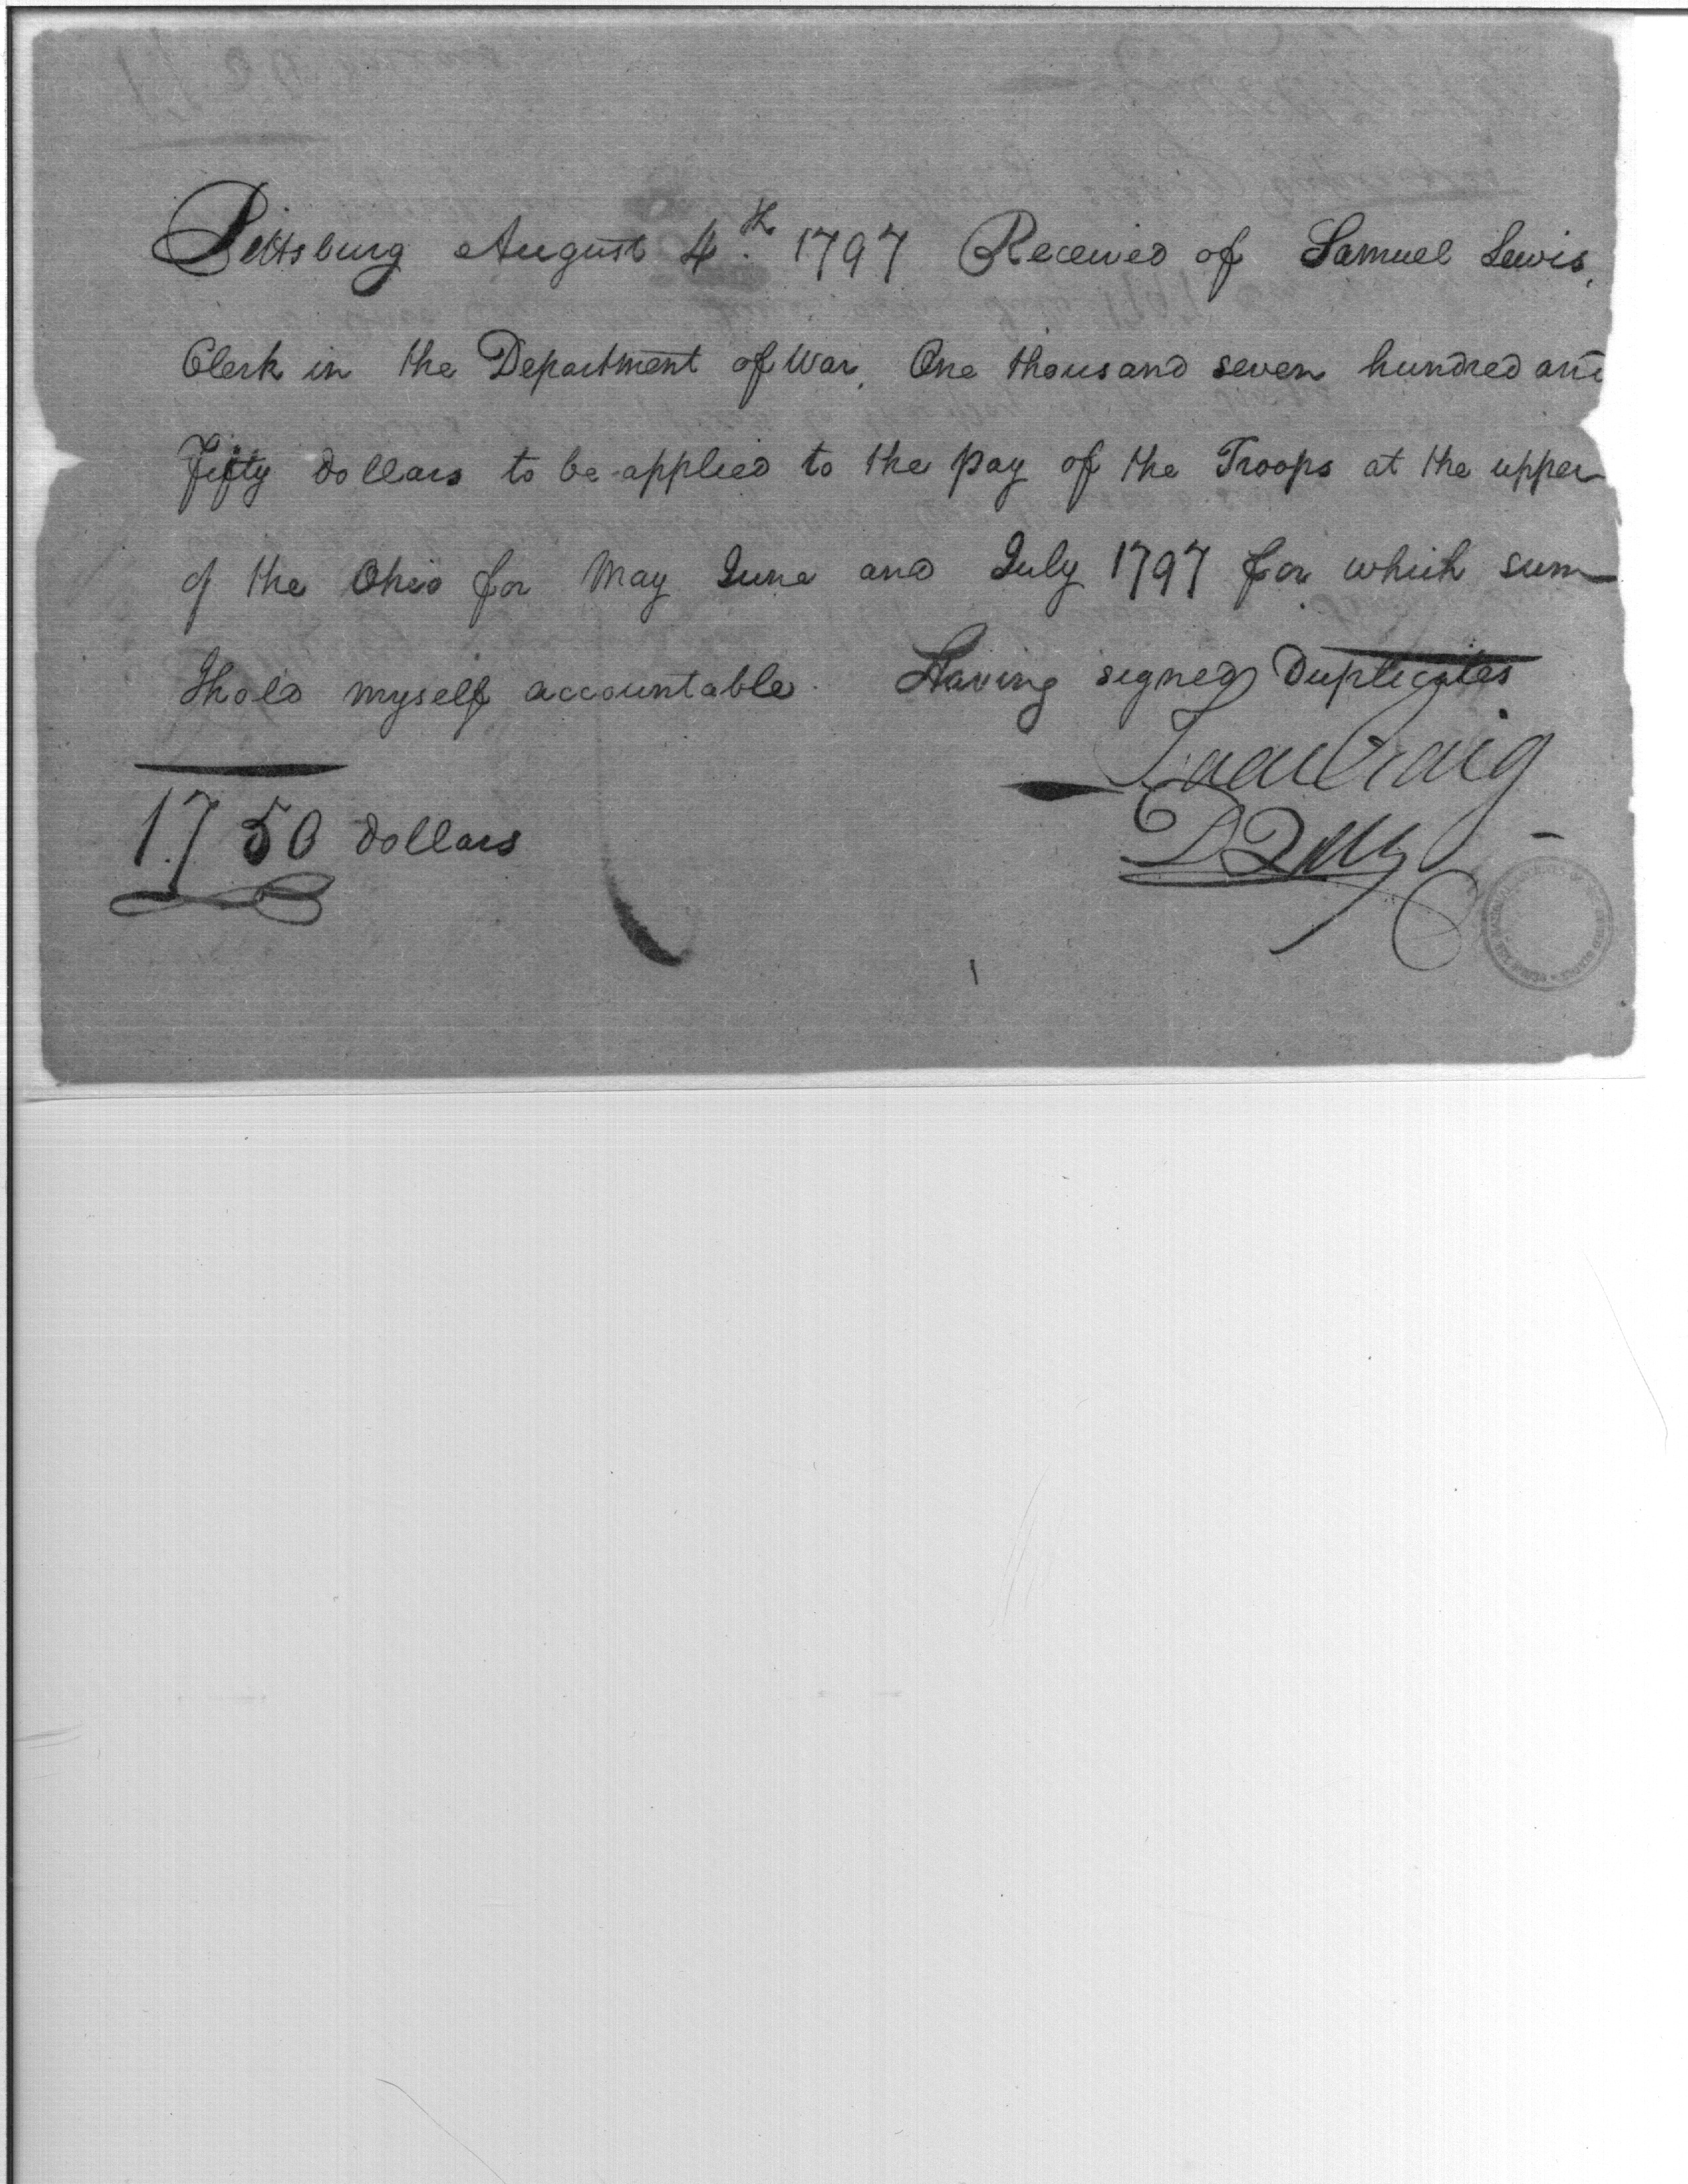 Pittsburg August 4th. 1797 Received of Samuel Lewis,
Clerk in the Department of War, One thousand seven hundred and
Fifty dollars to be applied to the pay of the Troops at the upper
of the Ohio for May June and July 1797 for which sum
I hold myself accountable. Having signed Duplicates
Isaac Craig
1750 dollars
DQM